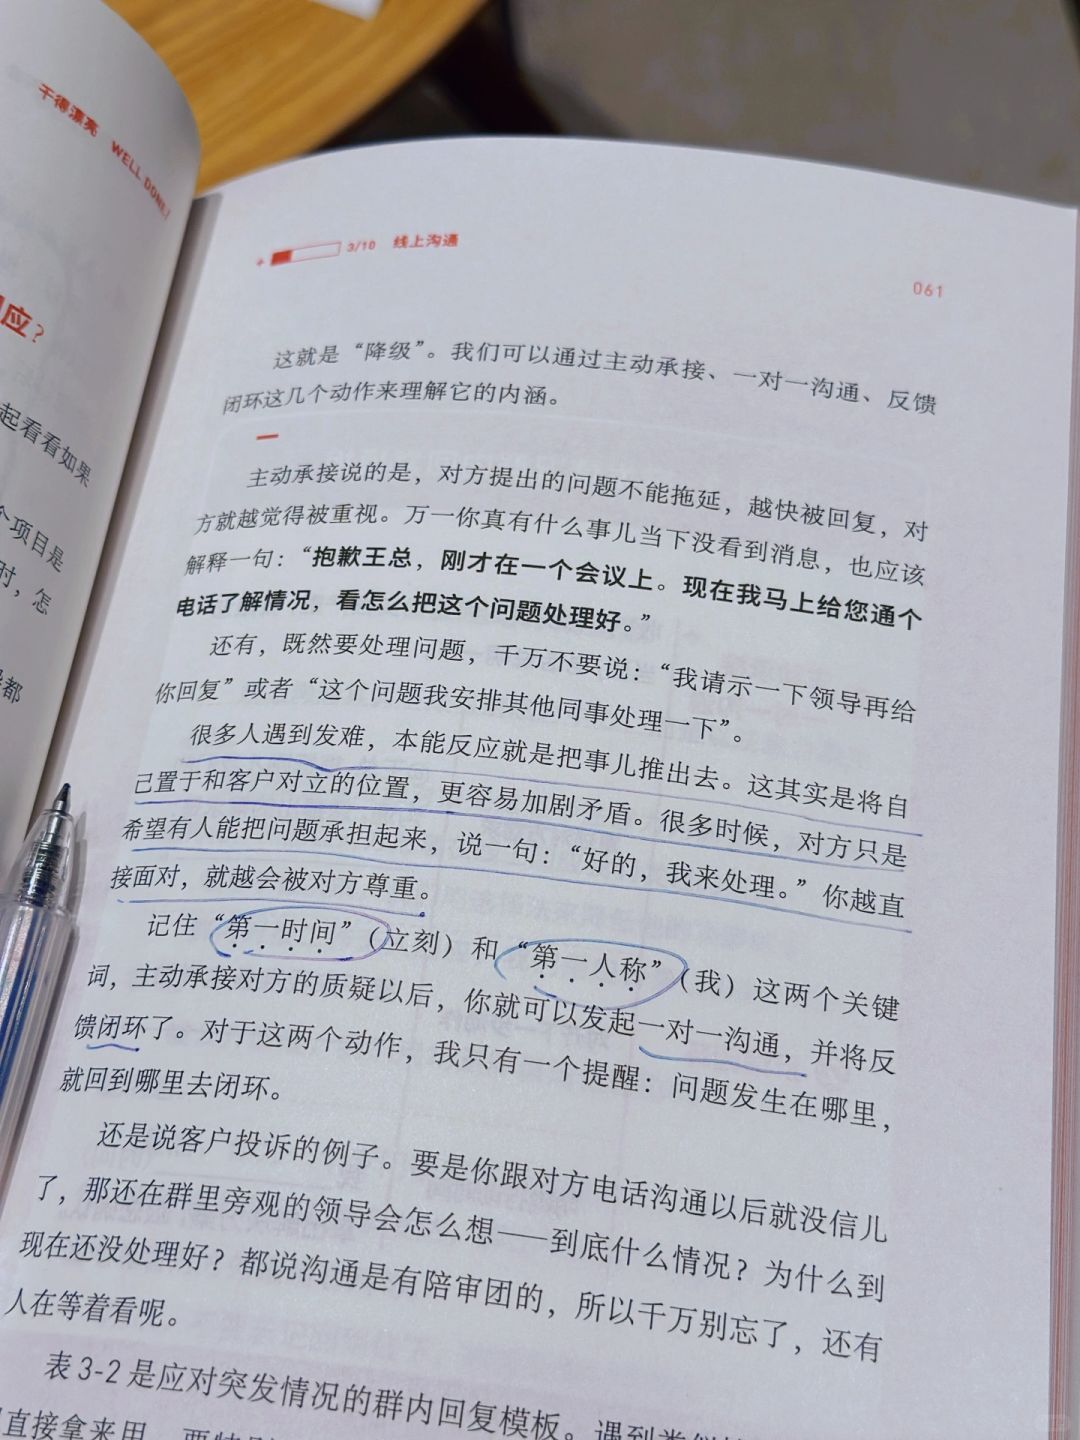 干得漂亮 WELL DONE!
应？
起看看如果
个项目是
时，怎
都
3/10 线上沟通
061
这就是“降级”。我们可以通过主动承接、一对一沟通、反馈
闭环这几个动作来理解它的内涵。
主动承接说的是，对方提出的问题不能拖延，越快被回复，对
方就越觉得被重视。万一你真有什么事儿当下没看到消息，也应该
解释一句：“抱歉王总，刚才在一个会议上。现在我马上给您通个
电话了解情况，看怎么把这个问题处理好。”
还有，既然要处理问题，千万不要说：“我请示一下领导再给
你回复”或者“这个问题我安排其他同事处理一下”。
很多人遇到发难，本能反应就是把事儿推出去。这其实是将自
己置于和客户对立的位置，更容易加剧矛盾。很多时候，对方只是
希望有人能把问题承担起来，说一句：“好的，我来处理。”你越直
接面对，就越会被对方尊重。
记住“第一时间”（立刻）和“第一人称”（我）这两个关键
词，主动承接对方的质疑以后，你就可以发起一对一沟通，并将反
馈闭环了。对于这两个动作，我只有一个提醒：问题发生在哪里，
就回到哪里去闭环。
还是说客户投诉的例子。要是你跟对方电话沟通以后就没信儿
了，那还在群里旁观的领导会怎么想——到底什么情况？为什么到
现在还没处理好？都说沟通是有陪审团的，所以千万别忘了，还有
人在等着看呢。
表 3-2 是应对突发情况的群内回复模板。遇到类似
直接拿来用